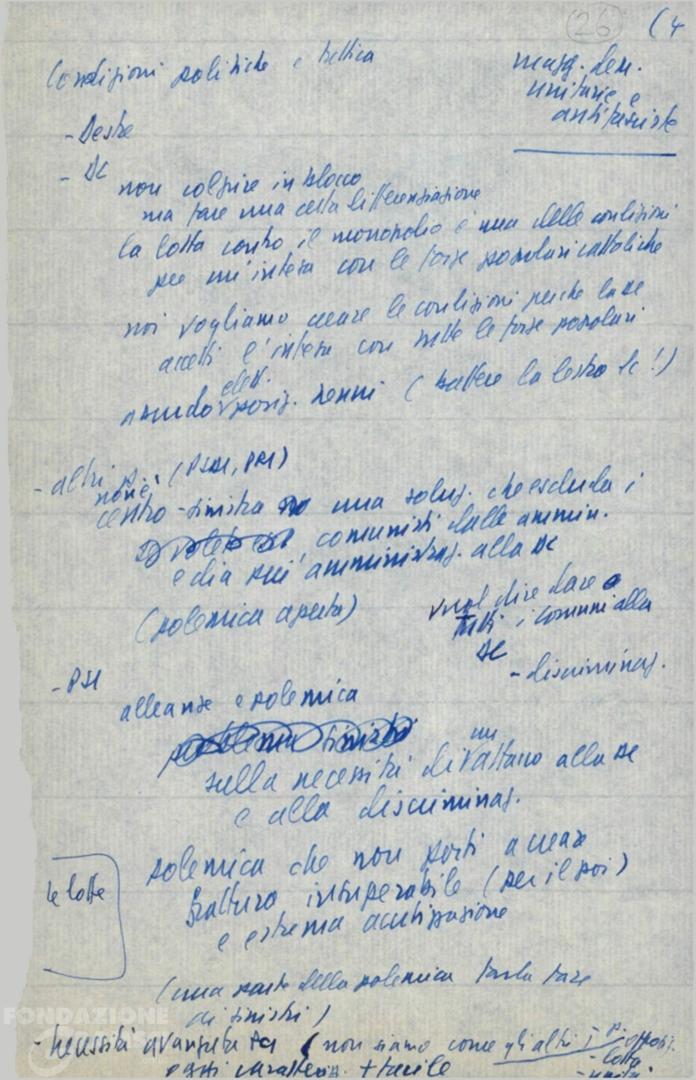 (26) (4
Condizioni politiche e tattica
magg. dem.
unitarie e
antifasciste
- Destre
- DC
non colpire in blocco
ma fare una certa differenziazione
la lotta contro il monopolio è una delle condizioni
per un'intesa con le forze popolari cattoliche
noi vogliamo creare le condizioni perche la DC
accetti l'intesa con tutte le forze popolari
posiz. Nenni (battere la destra DC!)
- altri p. (PSDI, PRI)
non è
centro-sinistra una soluz. che escluda i
comunisti dalle ammin.
e dia più amministraz. alla DC
(polemica aperta)
vuol dire dare
tutti i comuni alla
DC
- discriminaz.
- PSI
alleanze e polemica
un
sulla necessità di attacco alla DC
e alla discriminaz.
le lotte
polemica che non porti a creare
frattura insuperabile (per il poi)
e estrema acutizzazione
(una parte della polemica farla fare
ai sinistri)
FONDAZIONE
- necessità avanzata PCI (non siamo come gli altri p. opposiz.
- lotta
- unità